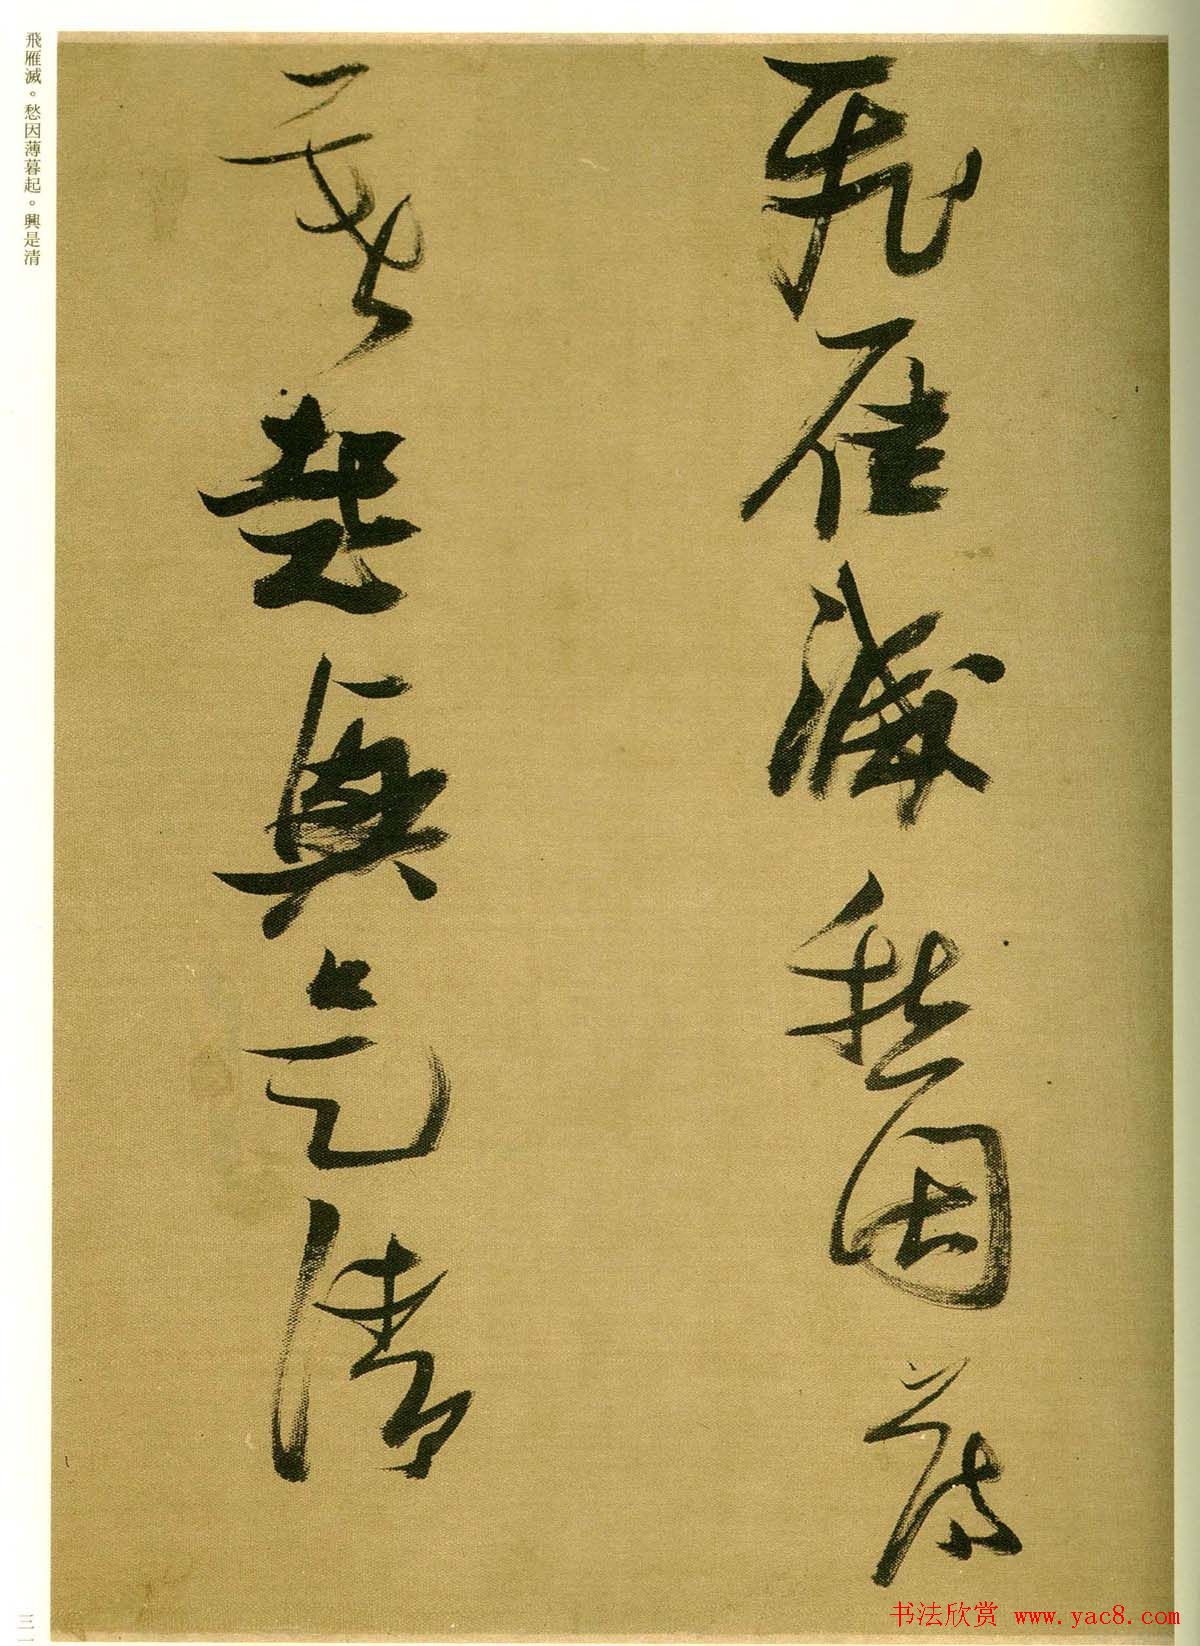 飛雁滅愁因薄
暮起興是清
飛雁滅。愁因薄暮起。興是清
三一
书法欣赏 www.yac8.com